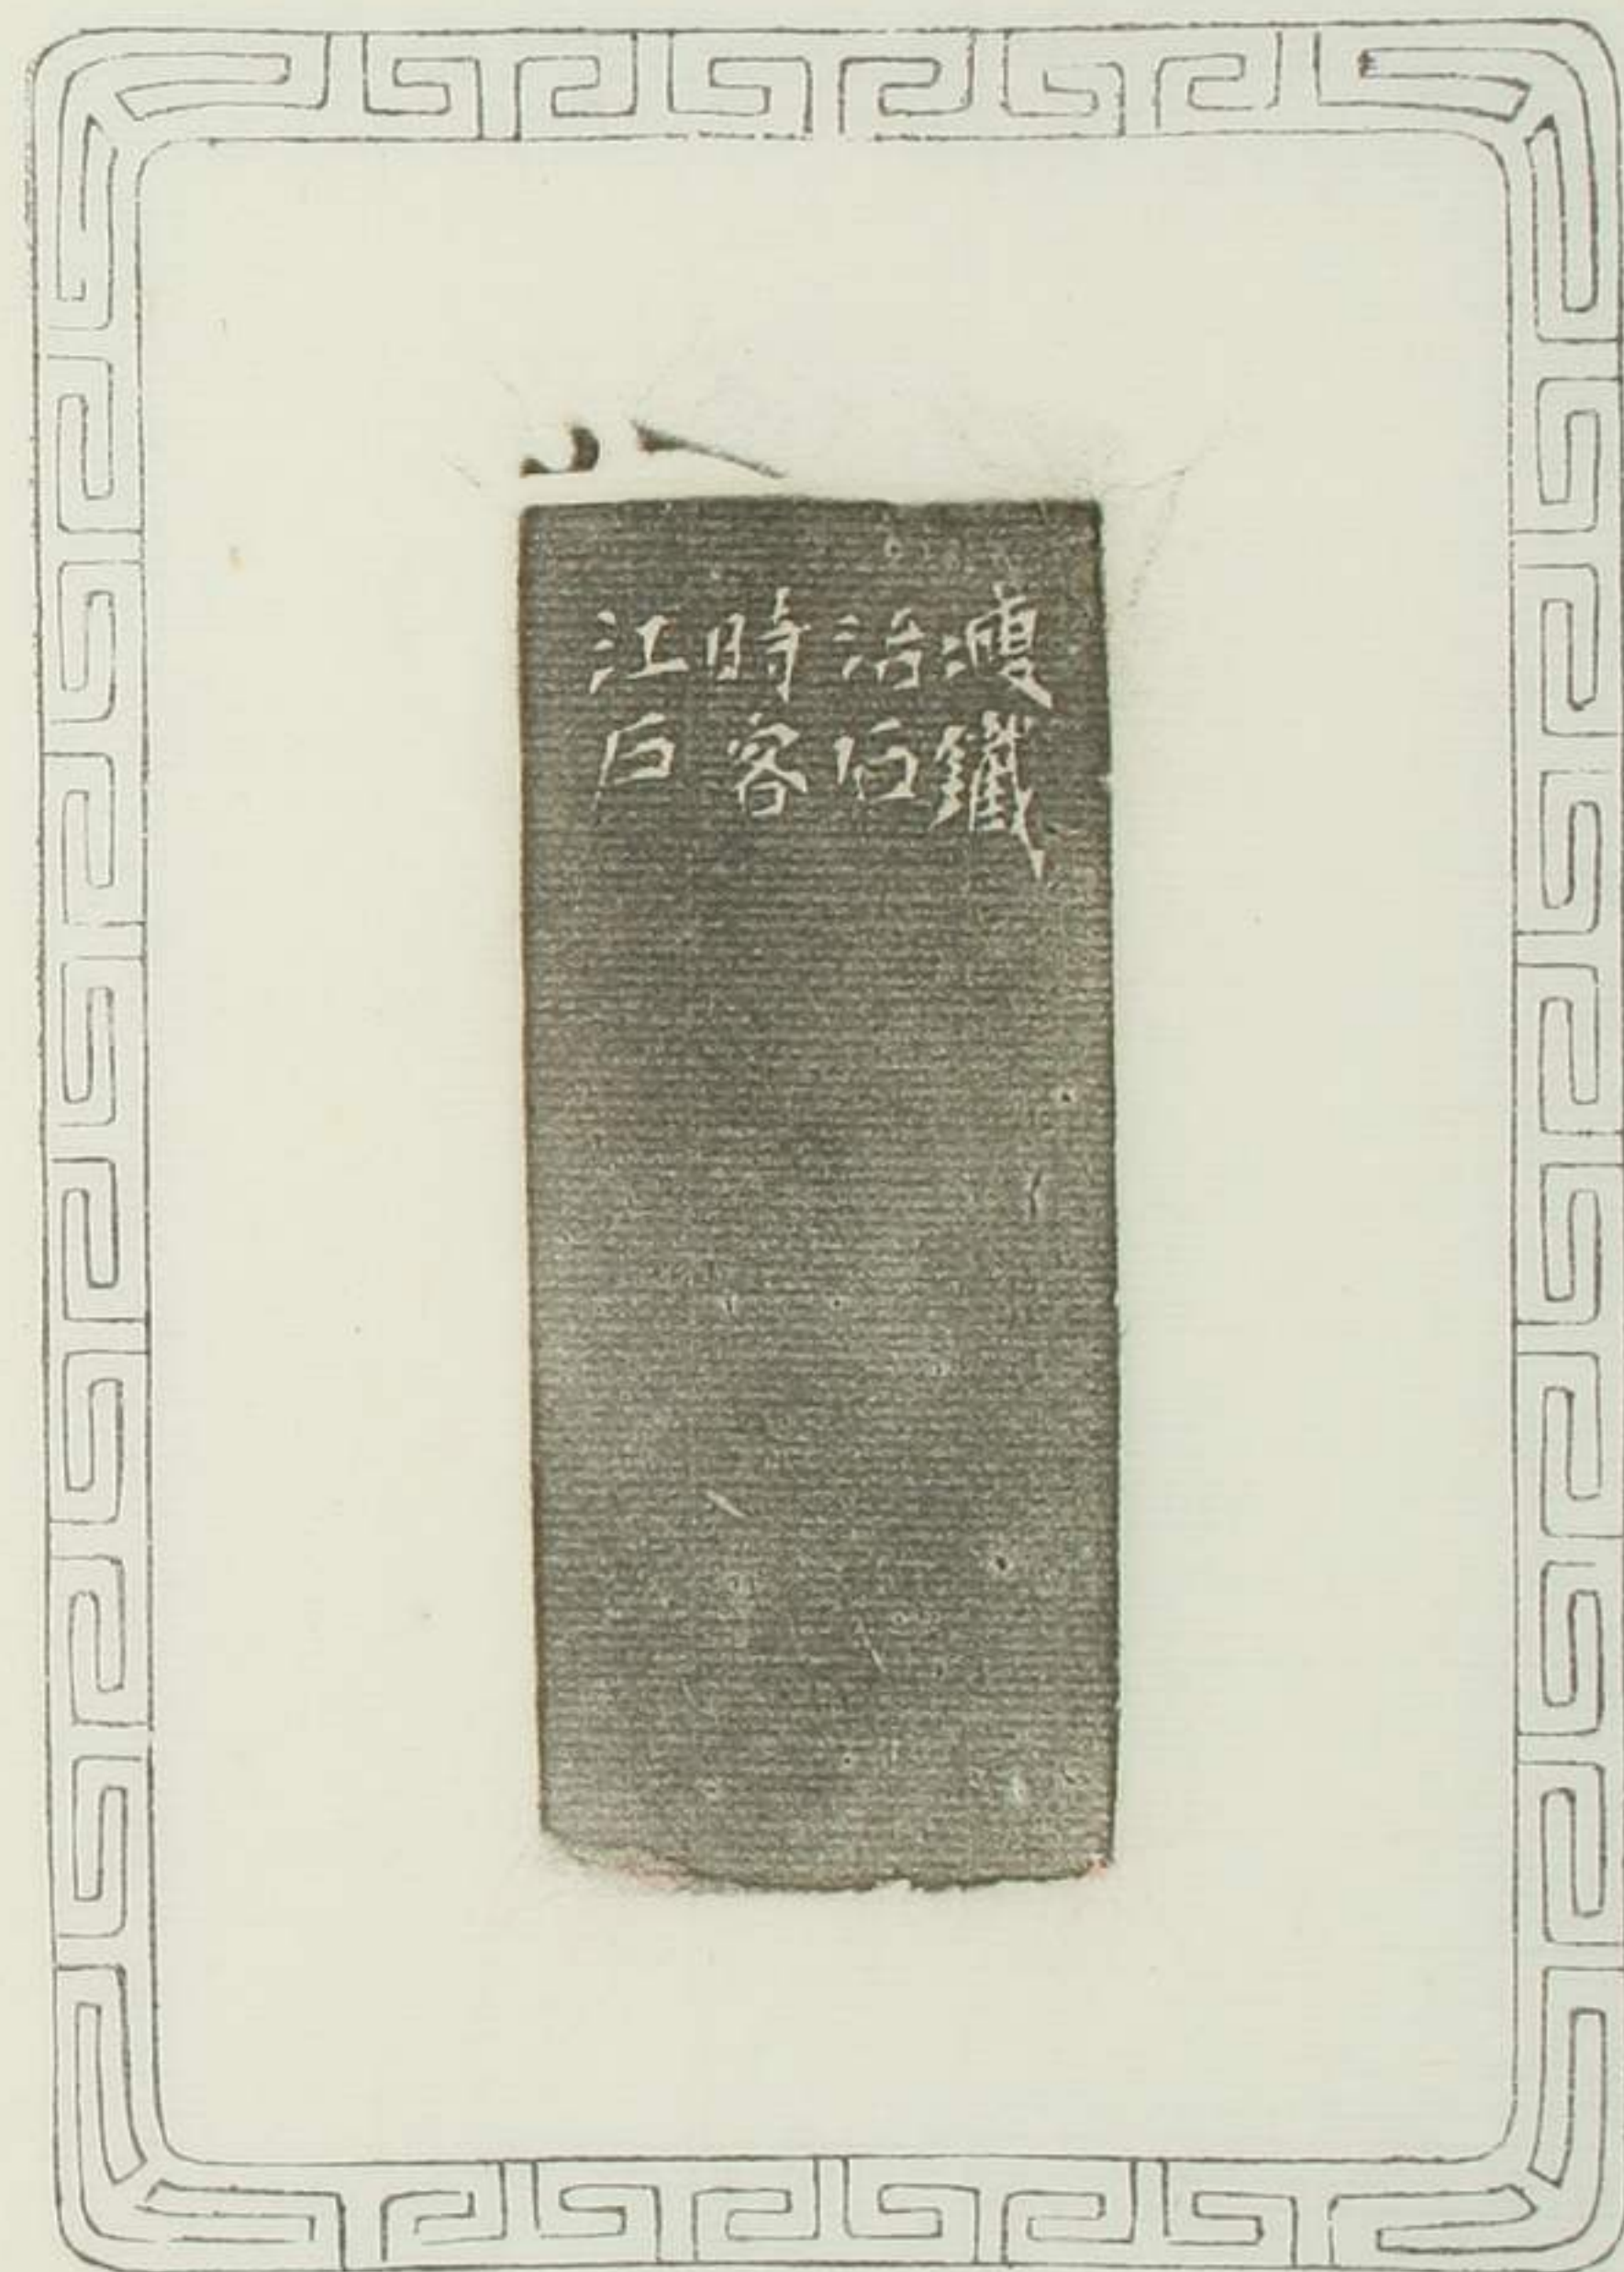 瘦鐵
治印
時客
江戶